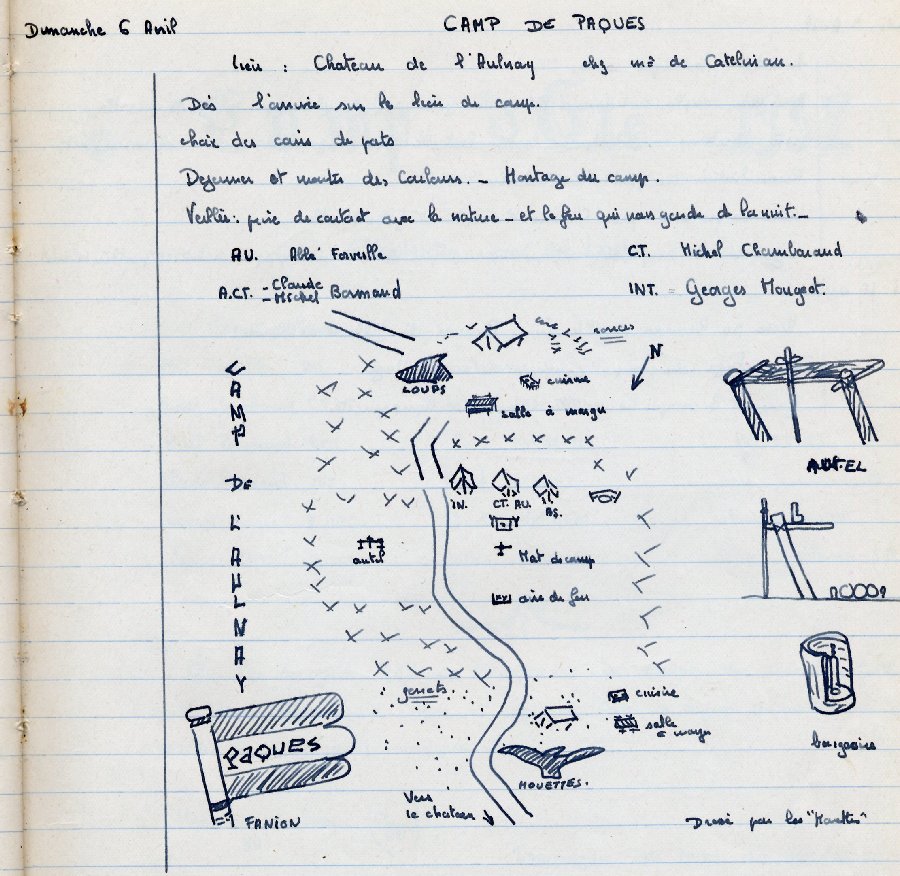 Dimanche 6 Avril
CAMP DE PAQUES
lieu : Chateau de l'Aulnay chez mr de Catelinan.
Dès l'arrivée sur le lieu de camp.
choix des coins de pats
Dejeuner et montée des Couleurs. _ Montage du camp.
Veillée: prise de contact avec la nature _ et le feu qui nous garde de la nuit._
AU. Abbé Forveille
C.T. Michel Chambouraud
A.C.T. - Claude
- Michel Bormand
INT. = Georges Mougeot.
ronces
N
LOUPS
cuisine
salle à manger
CAMP DE L'AULNAY
AUTEL
IN.
C.T. AU.
AS.
autel
Mat de camp
aire de feu
genets
cuisine
salle à manger
PAQUES
FANION
MOUETTES.
Vers
le chateau